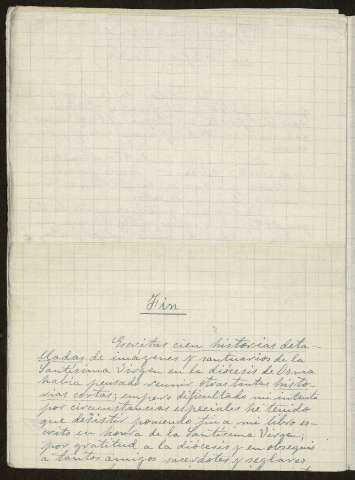 Fin
Escritas cien historias deta-
lladas de imágenes y santuarios de la
Santísima Virgen en la diócesis de Osma
había pensado reunir otras tantas histo-
rias cortas; empero dificultado mi intento
por circunstancias especiales he tenido
que desistir poniendo fin a mi libro es-
crito en honra de la Santísima Virgen,
por gratitud a la diócesis y en obsequio
a tantos amigos sacerdotes y seglares,